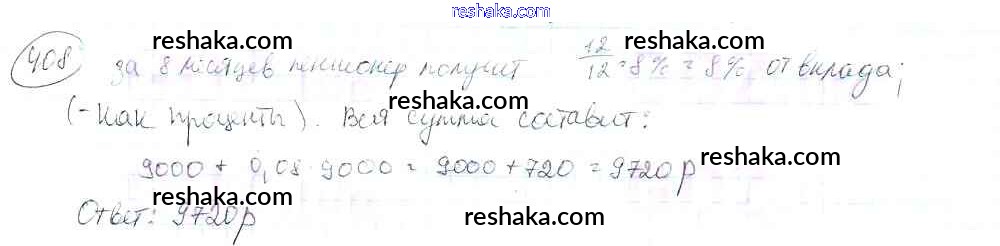 reshaka.com
reshaka.com reshaka.com
408 за 8 месяцев пенсионер получит 12/12 · 8% = 8% от вклада;
reshaka.com reshaka.com
(-как проценты). Вся сумма составит:
9000 + 0,08 · 9000 = 9000 + 720 = 9720 р
reshaka.com
reshaka.com
Ответ: 9720 р
reshaka.com
reshaka.com